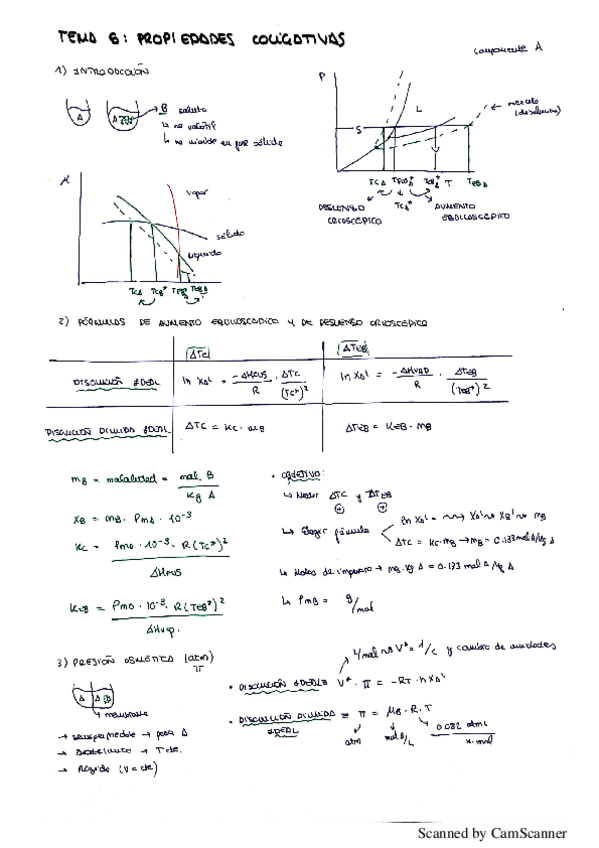 TEMA 6: PROPIEDADES COLIGATIVAS
componente A
1) INTRODUCCIÓN
P
A
A
B soluto
↳ no volatil
↳ no miscible en fase sólida
S
L
mezcla
(disolución)
TcA Tfus*A Teb*A T TebA
DESCENSO
CRIOSCÓPICO
TcA*
AUMENTO
EBULLOSCÓPICO
μ
vapor
sólido
líquido
2) FÓRMULAS DE AUMENTO EBULLOSCÓPICO Y DE DESCENSO CRIOSCÓPICO
ΔTc
ΔTEB
DISOLUCIÓN IDEAL
ln XA^l = -ΔHFUS / R · ΔTc / (Tc*)^2
ln XA^l = -ΔHVAP / R · ΔTEB / (TEB*)^2
DISOLUCIÓN DILUIDA IDEAL
ΔTC = Kc · mB
ΔTEB = KEB · mB
mB = molalidad = mol B / Kg A
XB = mB · PmA · 10^-3
Kc = PmA · 10^-3 · R(Tc*)^2 / ΔHFUS
KEB = PmA · 10^-3 · R(TEB*)^2 / ΔHvap.
• OBJETIVO:
↳ Medir ΔTC y ΔTEB
⊕ ⊕
↳ Elegir fórmula
ΔTC = Kc·mB → mB = 0.133 mol B/Kg A
↳ Moles de impureza → mB·Kg A = 0.133 mol
↳ PmB = g/mol
3) PRESIÓN OSMÓTICA (atm)
π
A
A B
membrana
→ semipermeable → pasa A
→ T cte.
→ Rígida (V = cte)
L/mol V* = 1/c y cambio de unidades
• DISOLUCIÓN IDEAL ≡ V* · π = -RT · ln XA^l
• DISOLUCIÓN DILUIDA ≡ π = MB · R · T
IDEAL
atm
mol B/L
0.082 atm L / K·mol
Scanned by CamScanner